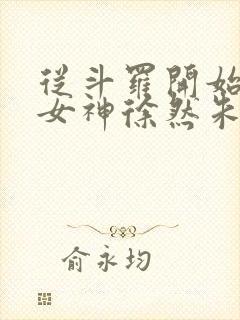 從斗羅開始
女神徐然朱
俞永均